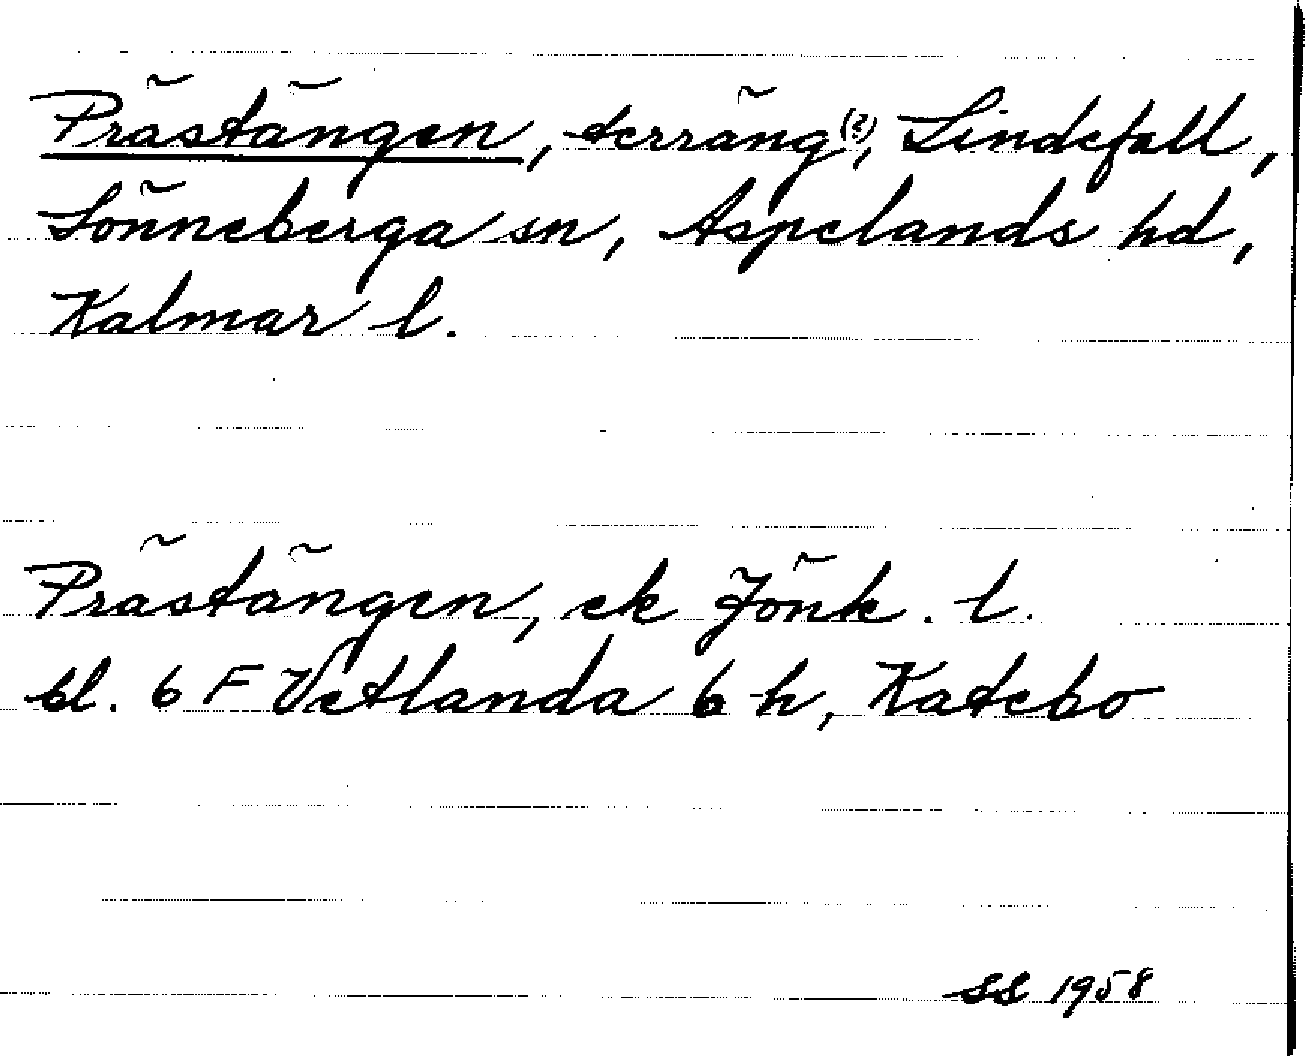 Prästängen, terräng(?), Lindefall,
Lönneberga sn, Aspelands hd,
Kalmar l.
Prästängen, ek Jönk. l.
bl. 6 F Vetlanda 6 h, Katebo
SS 1958